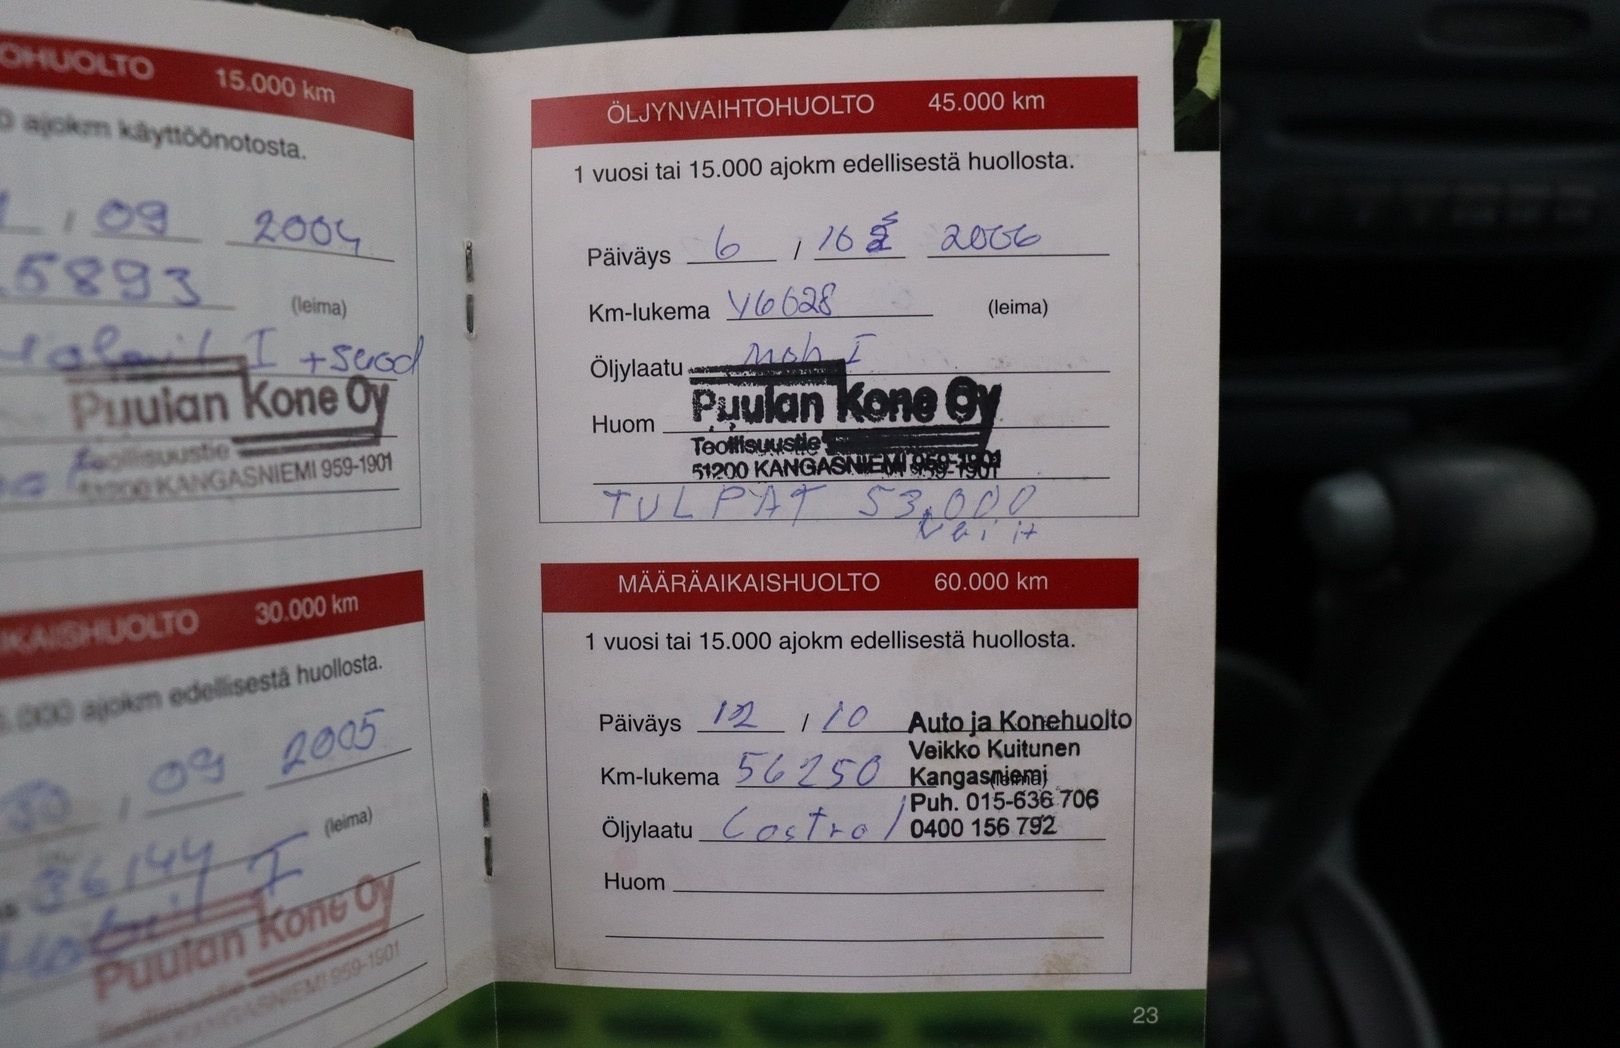 OHUOLTO 15.000 km
ajokm käyttöönotosta.
/ 09 2004
5893
(leima)
I + suod
Puulan Kone Oy
Teollisuustie
51200 KANGASNIEMI 959-1901
IKAISHUOLTO 30.000 km
.000 ajokm edellisestä huollosta.
30 / 09 2005
(leima)
36144
Mobil I
Puulan Kone Oy
Teollisuustie
KANGASNIEMI 959-1901
ÖLJYNVAIHTOHUOLTO 45.000 km
1 vuosi tai 15.000 ajokm edellisestä huollosta.
Päiväys 6 / 10 2006
Km-lukema 46028 (leima)
Öljylaatu Mob I
Puulan Kone Oy
Huom
Teollisuustie
51200 KANGASNIEMI 959-1901
TULPAT 53.000
MÄÄRÄAIKAISHUOLTO 60.000 km
1 vuosi tai 15.000 ajokm edellisestä huollosta.
Päiväys 12 / 10 Auto ja Konehuolto
Veikko Kuitunen
Km-lukema 56250 Kangasniemi (leima)
Puh. 015-636 706
Öljylaatu Castrol 0400 156 792
Huom
23